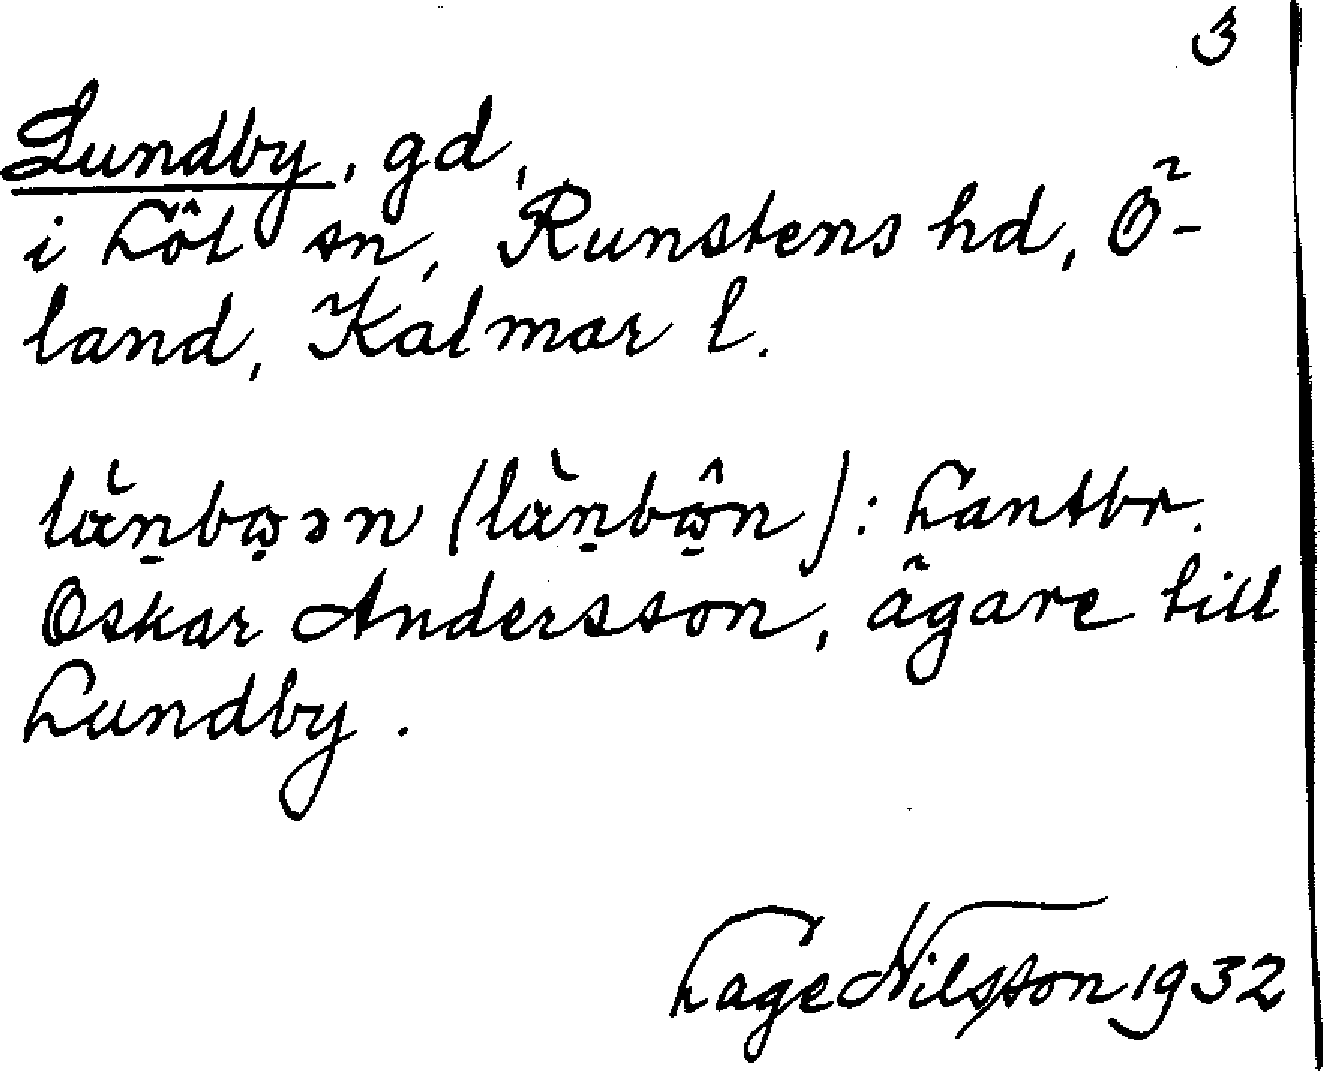 3
Lundby, gd,
i Löt sn, Runstens hd, Ö-
land, Kalmar l.
Lantbr.
Oskar Andersson, ägare till
Lundby.
Lage Nilsson 1932